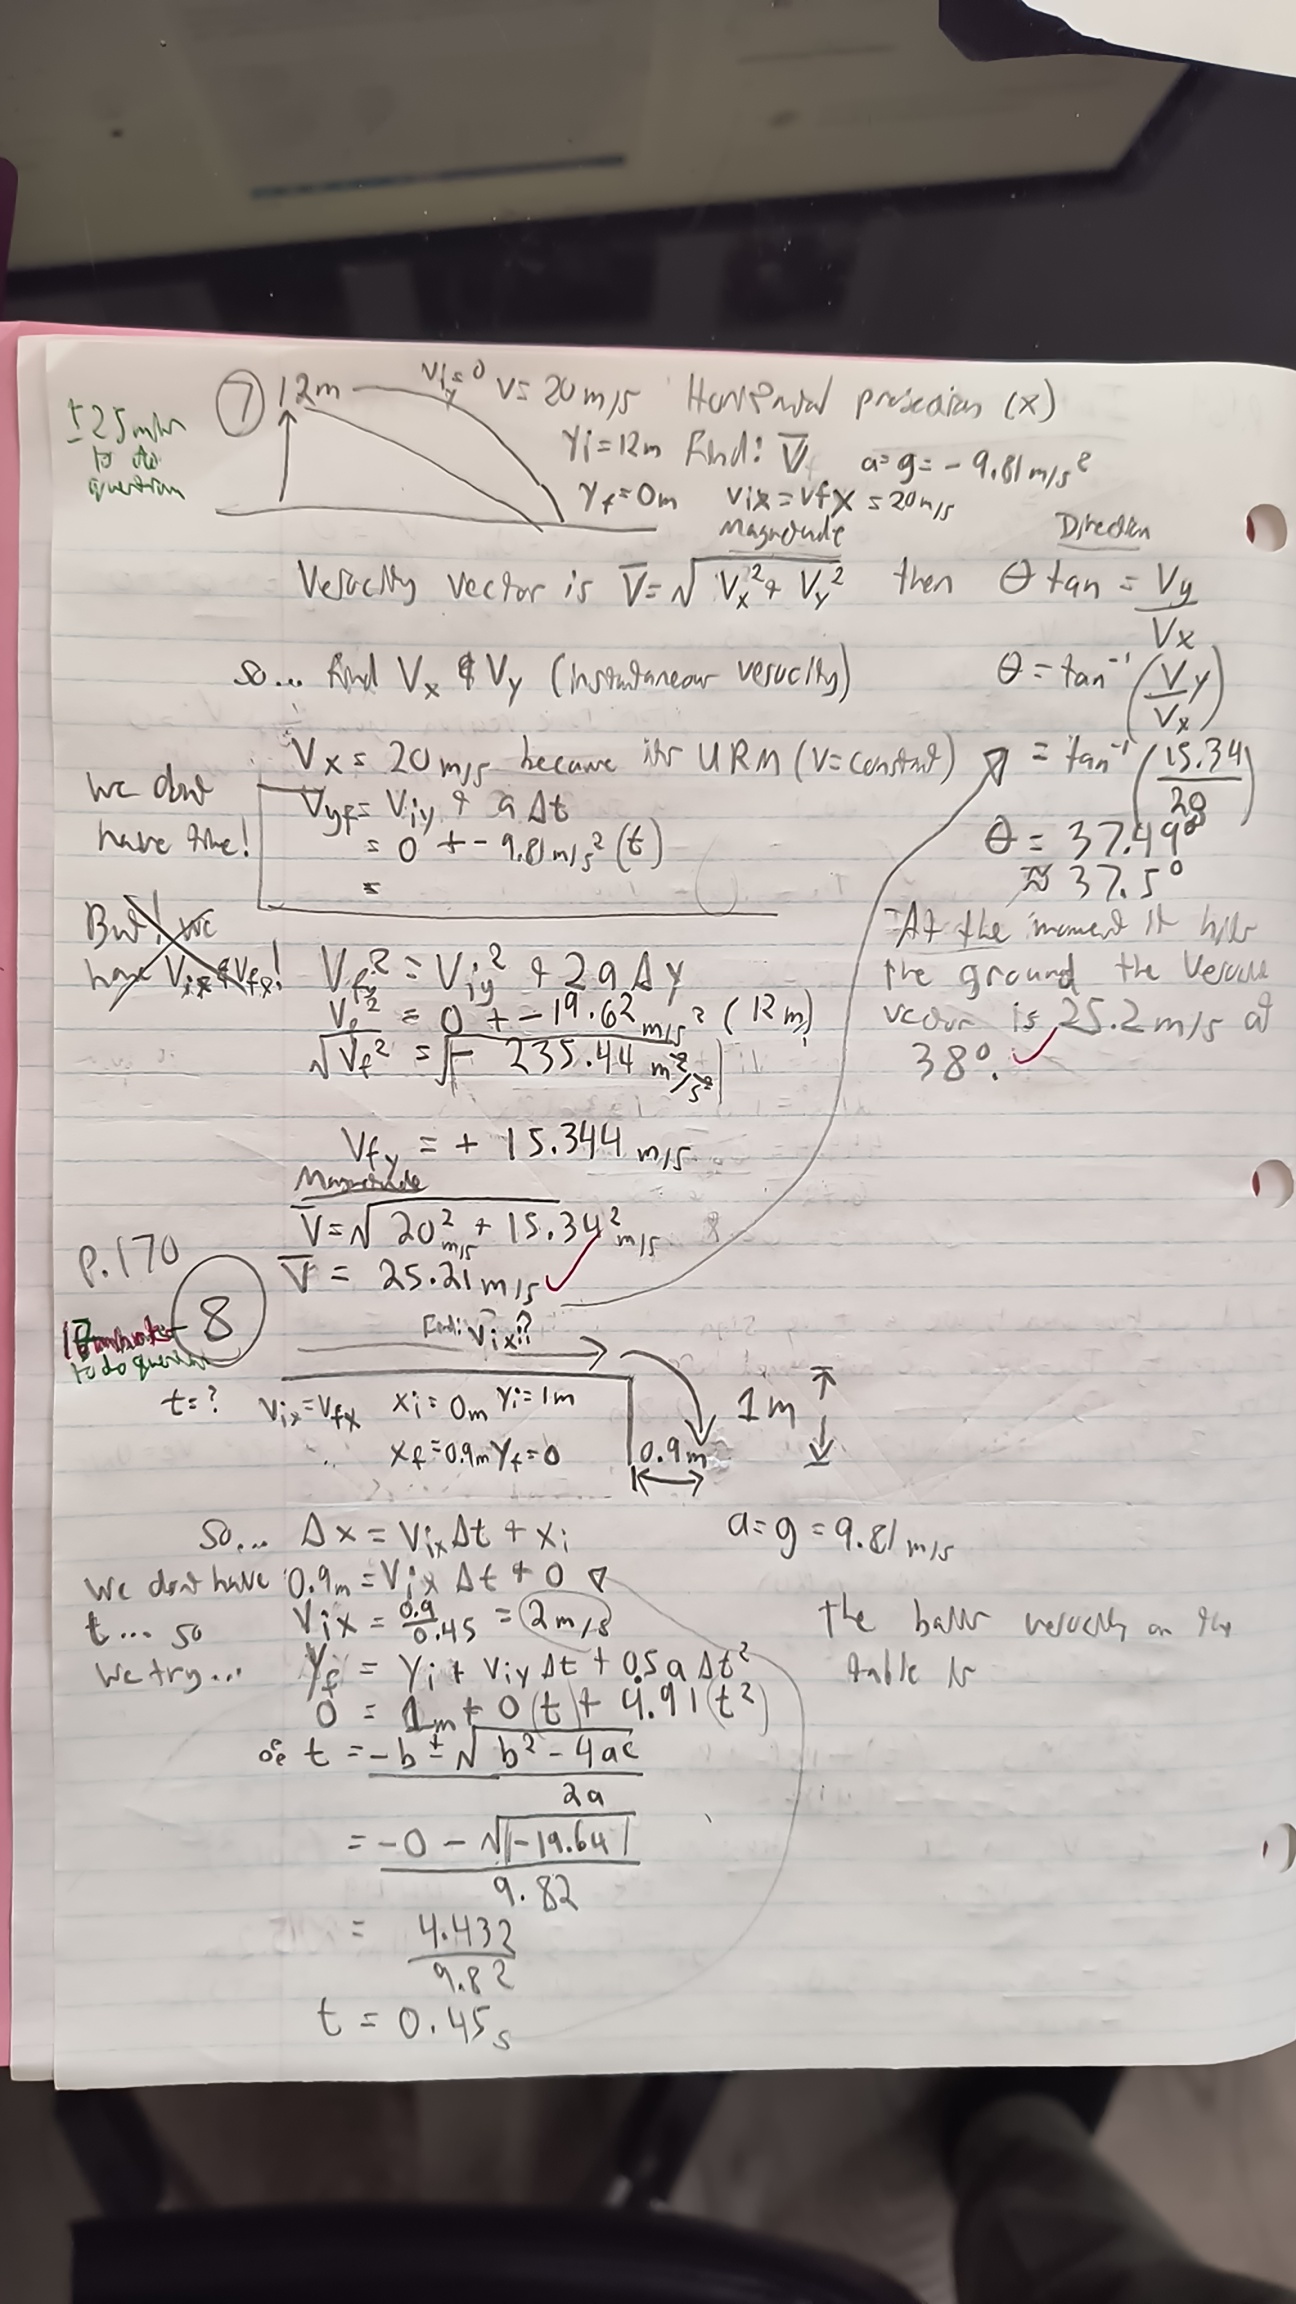 ± 25 min to do question
⑦ 12m viy=0 v= 20 m/s Horizontal projection (x)
yi=12m find: V̅ a=g= -9.81 m/s²
yf=0m vix=vfx = 20 m/s
Magnitude Direction
Velocity vector is V̅=√Vx²+Vy² then θ tan = Vy/Vx
so... find Vx & Vy (instantaneous velocity) θ=tan⁻¹(Vy/Vx)
Vx = 20 m/s because its URM (v=constant) = tan⁻¹(15.34/20)
we dont have time!
Vyf= Viy + a Δt
= 0 + -9.81 m/s² (t)
=
θ = 37.49°
≈ 37.5°
But! we have Vix & Vfx!
Vfy² = Viy² + 2aΔy
Vf² = 0 + -19.62 m/s² (12m)
√Vf² = √|- 235.44 m²/s²|
Vfy = + 15.344 m/s
At the moment it hits
the ground the
vector is 25.2 m/s at
38°. ✓
Magnitude
V̅=√20² m/s + 15.34² m/s
V̅ = 25.21 m/s ✓
P.170
8
to do question
Find: Vix??
t=? Vix=Vfx xi = 0m yi= 1m
xf=0.9m yf=0
0.9m
1m
so... Δx = Vix Δt + xi a=g=9.81 m/s
We dont have t... so we try...
0.9m = Vix Δt + 0
Vix = 0.9/0.45 = 2 m/s
The balls velocity on the
table is
yf = yi + viy Δt + 0.5 a Δt²
0 = 1m + 0(t) + 4.91(t²)
t = -b ± √b² - 4ac / 2a
= -0 - √|-19.64| / 9.82
= 4.432 / 9.82
t = 0.45 s